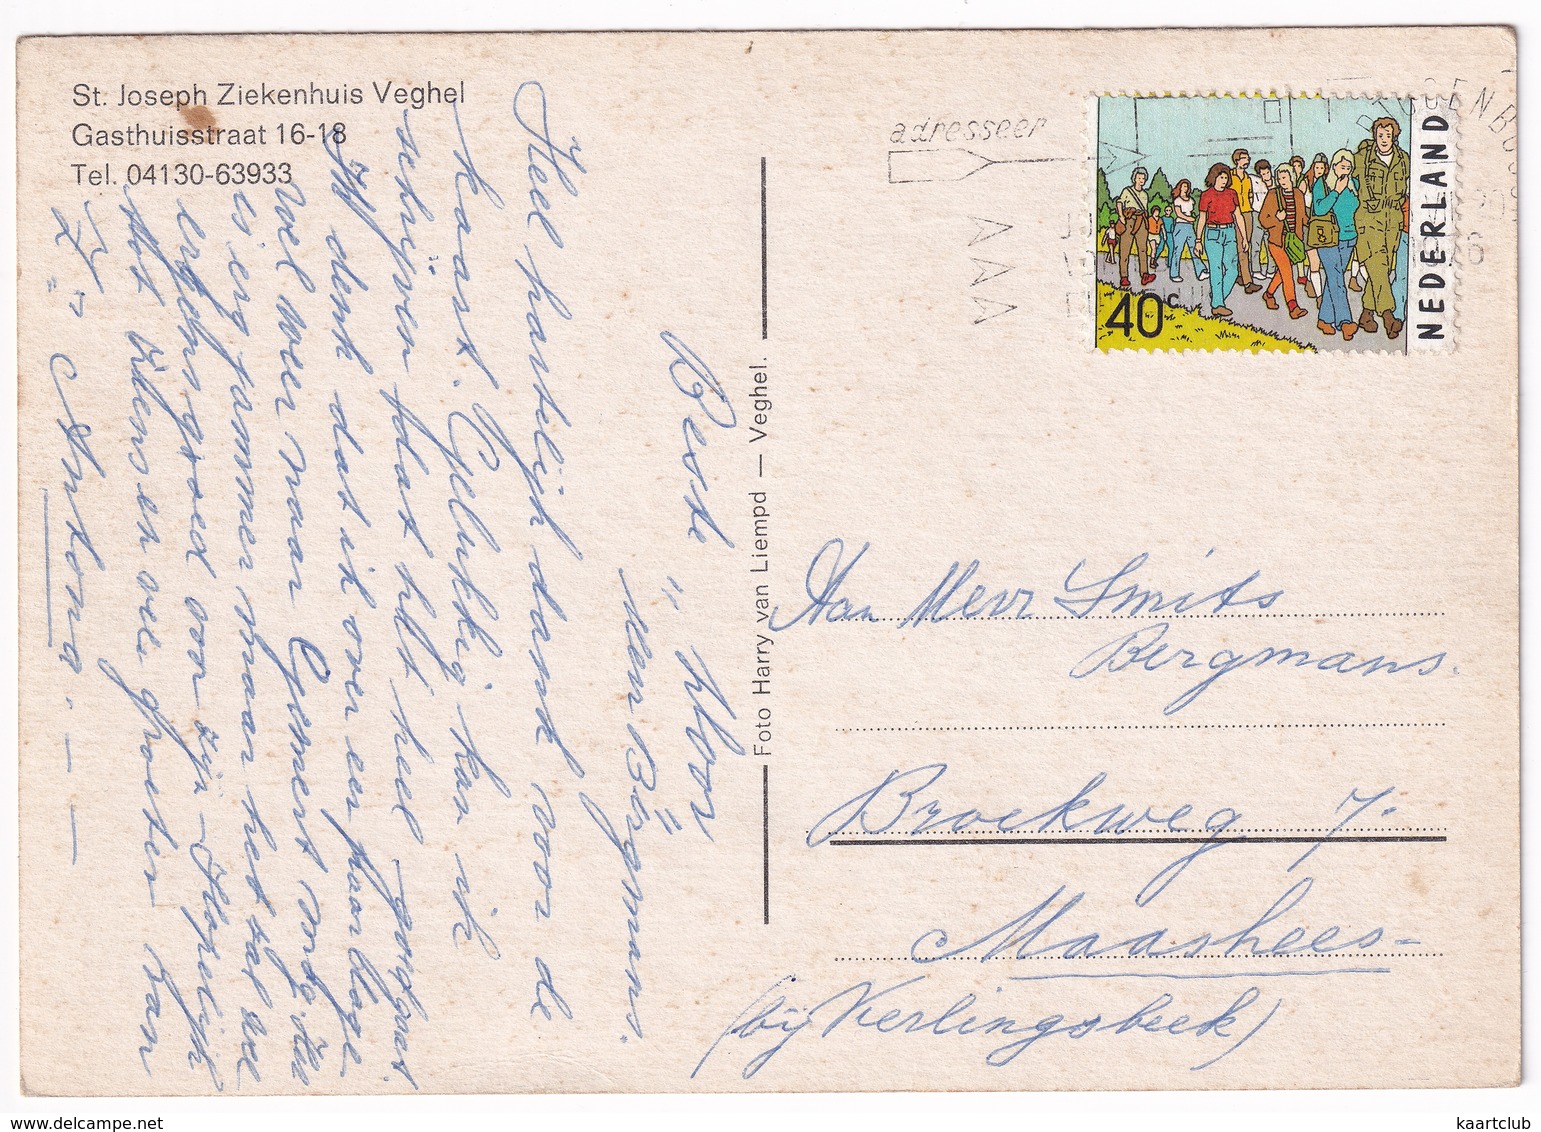 St. Joseph Ziekenhuis Veghel
Gasthuisstraat 16-18
Tel. 04130-63933
Beste "Noor"
Men Bergmans.
Heel hartelijk dank voor de
kaart. Gelukkig kan ik
schrijven fdat hlt heel goedgaat.
Ik denk dat ik over een paar dage
wel weer naar Gemert mag, Ella
is erg jammer maar het zal wel
ergens goed voor zijn - Hopelijk
tot ziens en vele groeten van
Zr "Z" Antona. - -
Foto Harry van Liempd — Veghel.
adresseer
NEDERLAND
40c
Aan Mevr Smits
Bergmans.
Broekweg 7.
Maashees-
(bij Vierlingsbeek)
www.delcampe.net
kaartclub